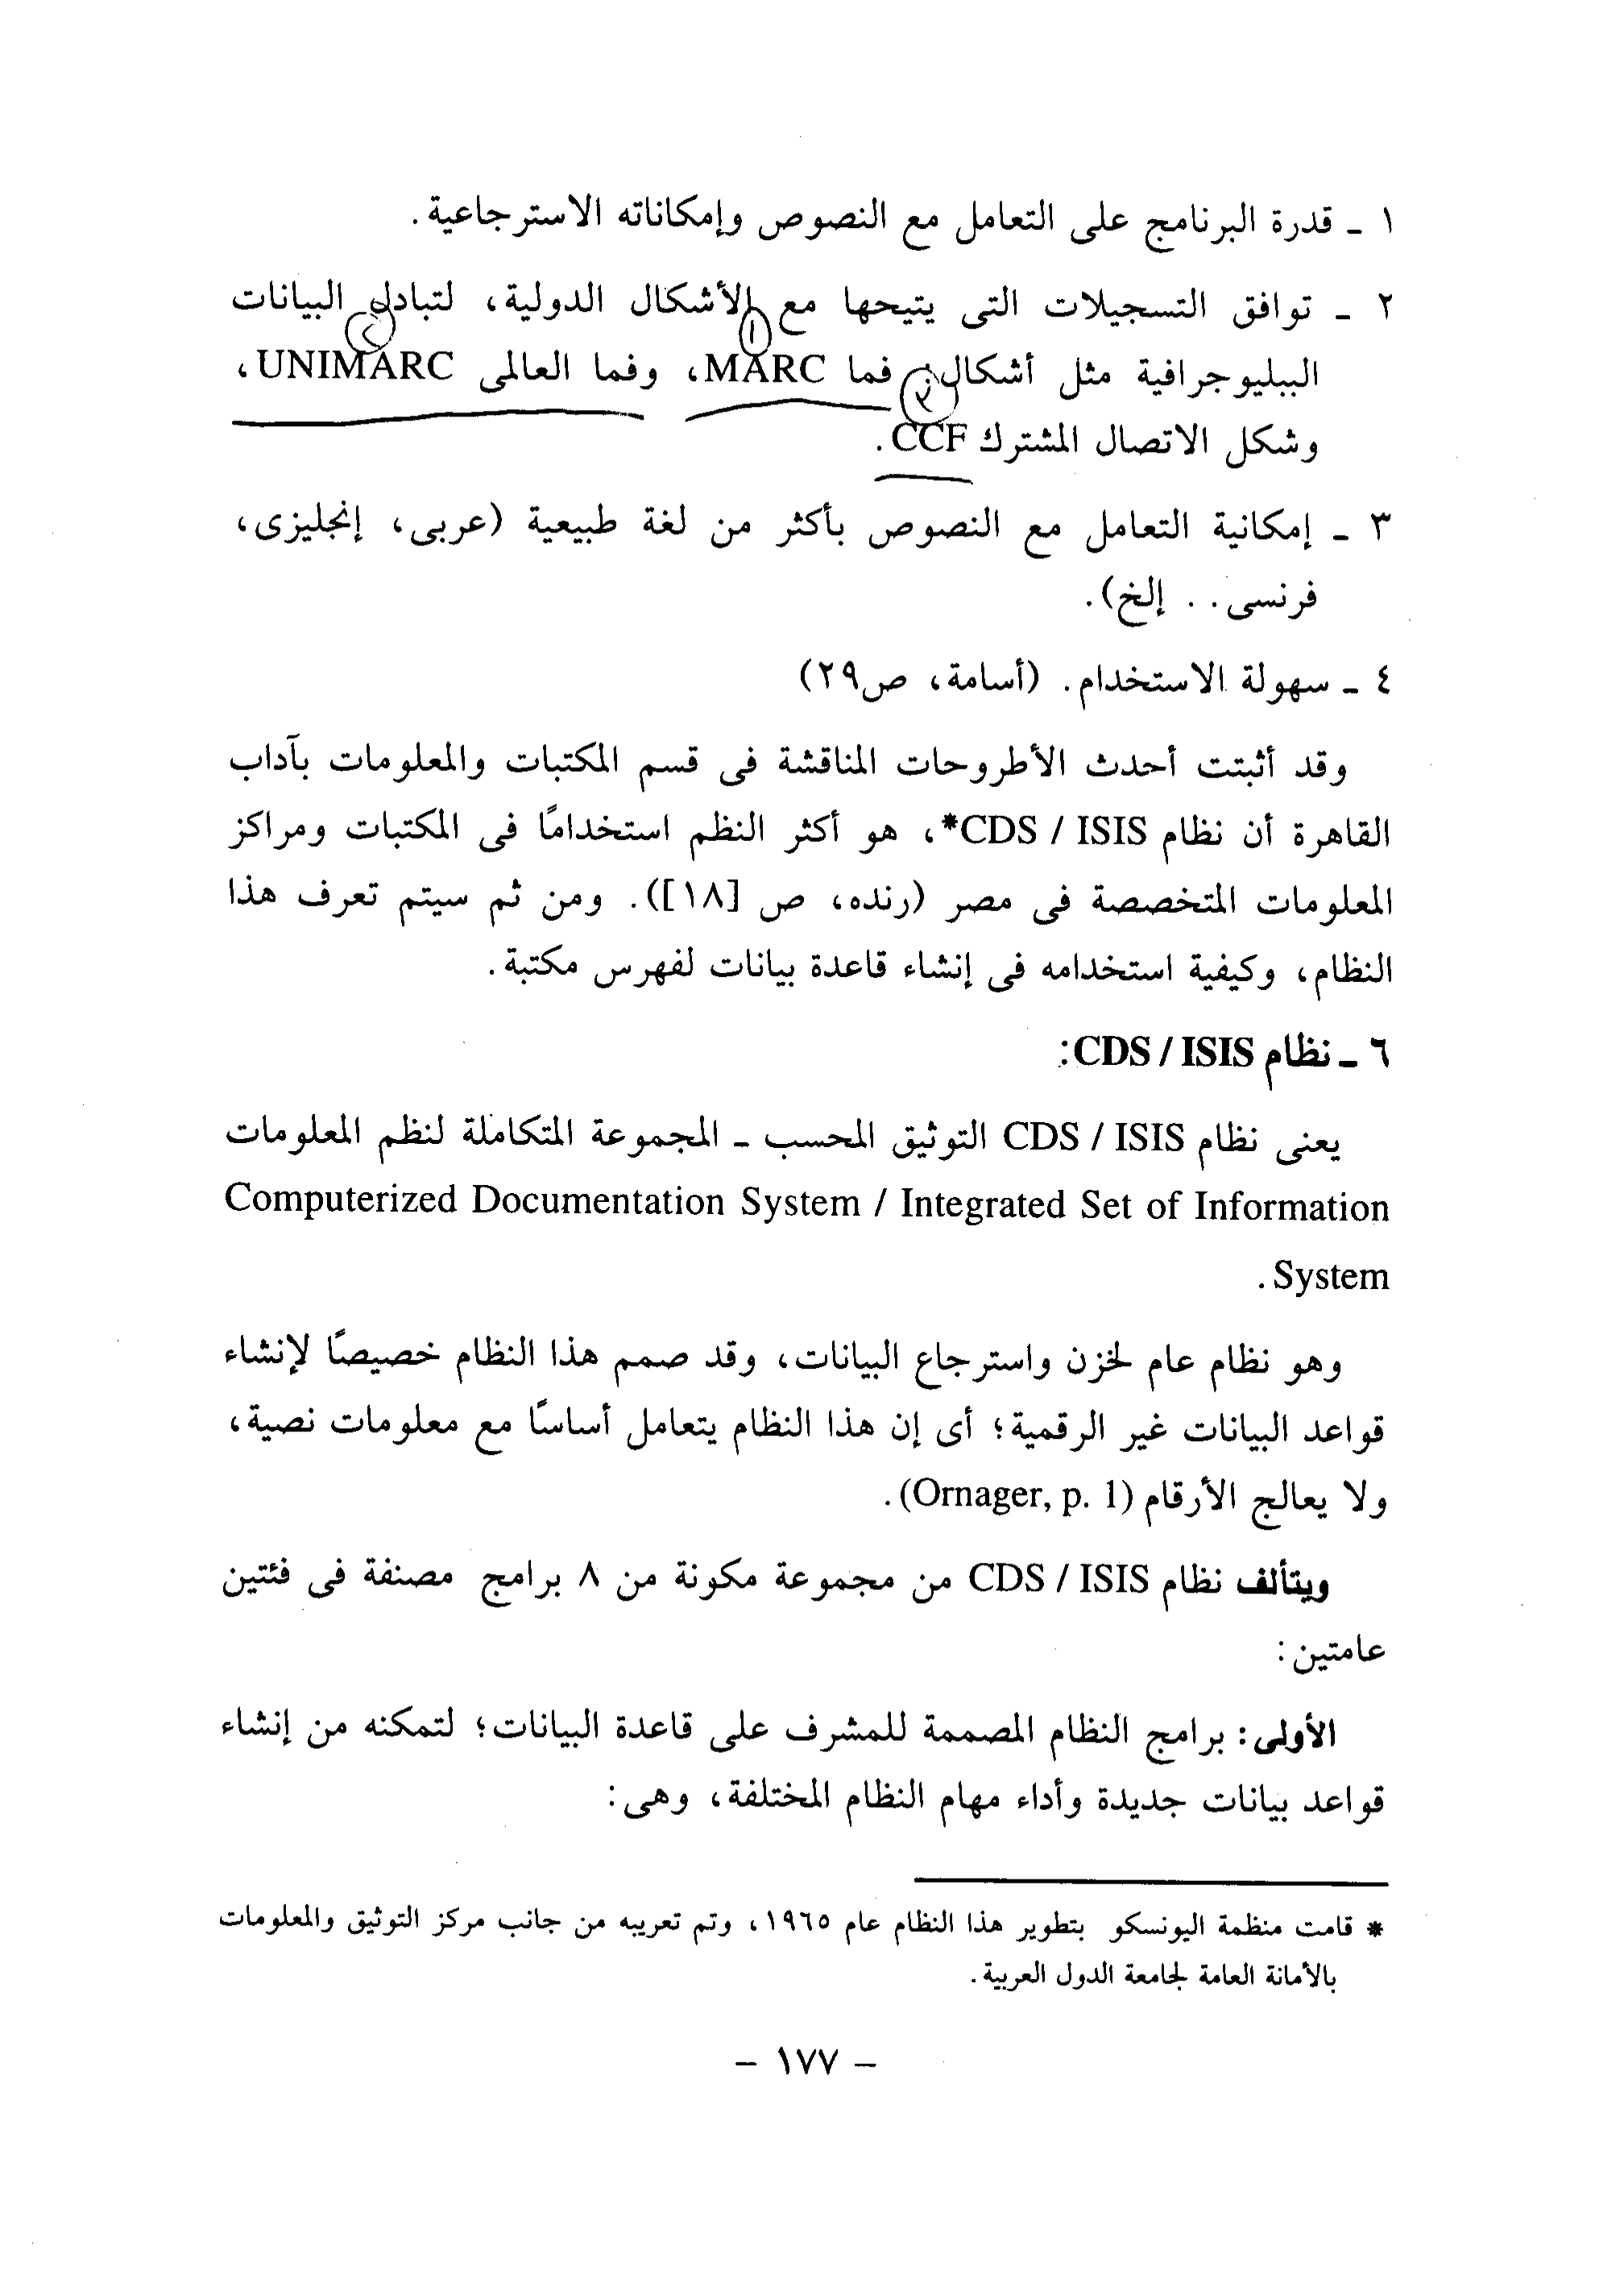 ١ - قدرة البرنامج على التعامل مع النصوص وإمكاناته الاسترجاعية.
٢ - توافق التسجيلات التى يتيحها مع الأشكال الدولية، لتبادل البيانات
الببليوجرافية مثل أشكال: فما MARC، وفما العالمى UNIMARC،
وشكل الاتصال المشترك CCF.
٣ - إمكانية التعامل مع النصوص بأكثر من لغة طبيعية (عربى، إنجليزى،
فرنسى.. إلخ).
٤ - سهولة الاستخدام. (أسامة، ص٢٩)
وقد أثبتت أحدث الأطروحات المناقشة فى قسم المكتبات والمعلومات بآداب
القاهرة أن نظام CDS / ISIS*، هو أكثر النظم استخدامًا فى المكتبات ومراكز
المعلومات المتخصصة فى مصر (رنده، ص [١٨]). ومن ثم سيتم تعرف هذا
النظام، وكيفية استخدامه فى إنشاء قاعدة بيانات لفهرس مكتبة.
٦ - نظام CDS / ISIS:
يعنى نظام CDS / ISIS التوثيق المحسب - المجموعة المتكاملة لنظم المعلومات
Computerized Documentation System / Integrated Set of Information
System.
وهو نظام عام لخزن واسترجاع البيانات، وقد صمم هذا النظام خصيصًا لإنشاء
قواعد البيانات غير الرقمية؛ أى إن هذا النظام يتعامل أساسًا مع معلومات نصية،
ولا يعالج الأرقام (Ornager, p. 1).
ويتألف نظام CDS / ISIS من مجموعة مكونة من ٨ برامج مصنفة فى فئتين
عامتين:
الأولى: برامج النظام المصممة للمشرف على قاعدة البيانات؛ لتمكنه من إنشاء
قواعد بيانات جديدة وأداء مهام النظام المختلفة، وهى:
* قامت منظمة اليونسكو بتطوير هذا النظام عام ١٩٦٥، وتم تعريبه من جانب مركز التوثيق والمعلومات
بالأمانة العامة لجامعة الدول العربية.
- ١٧٧ -